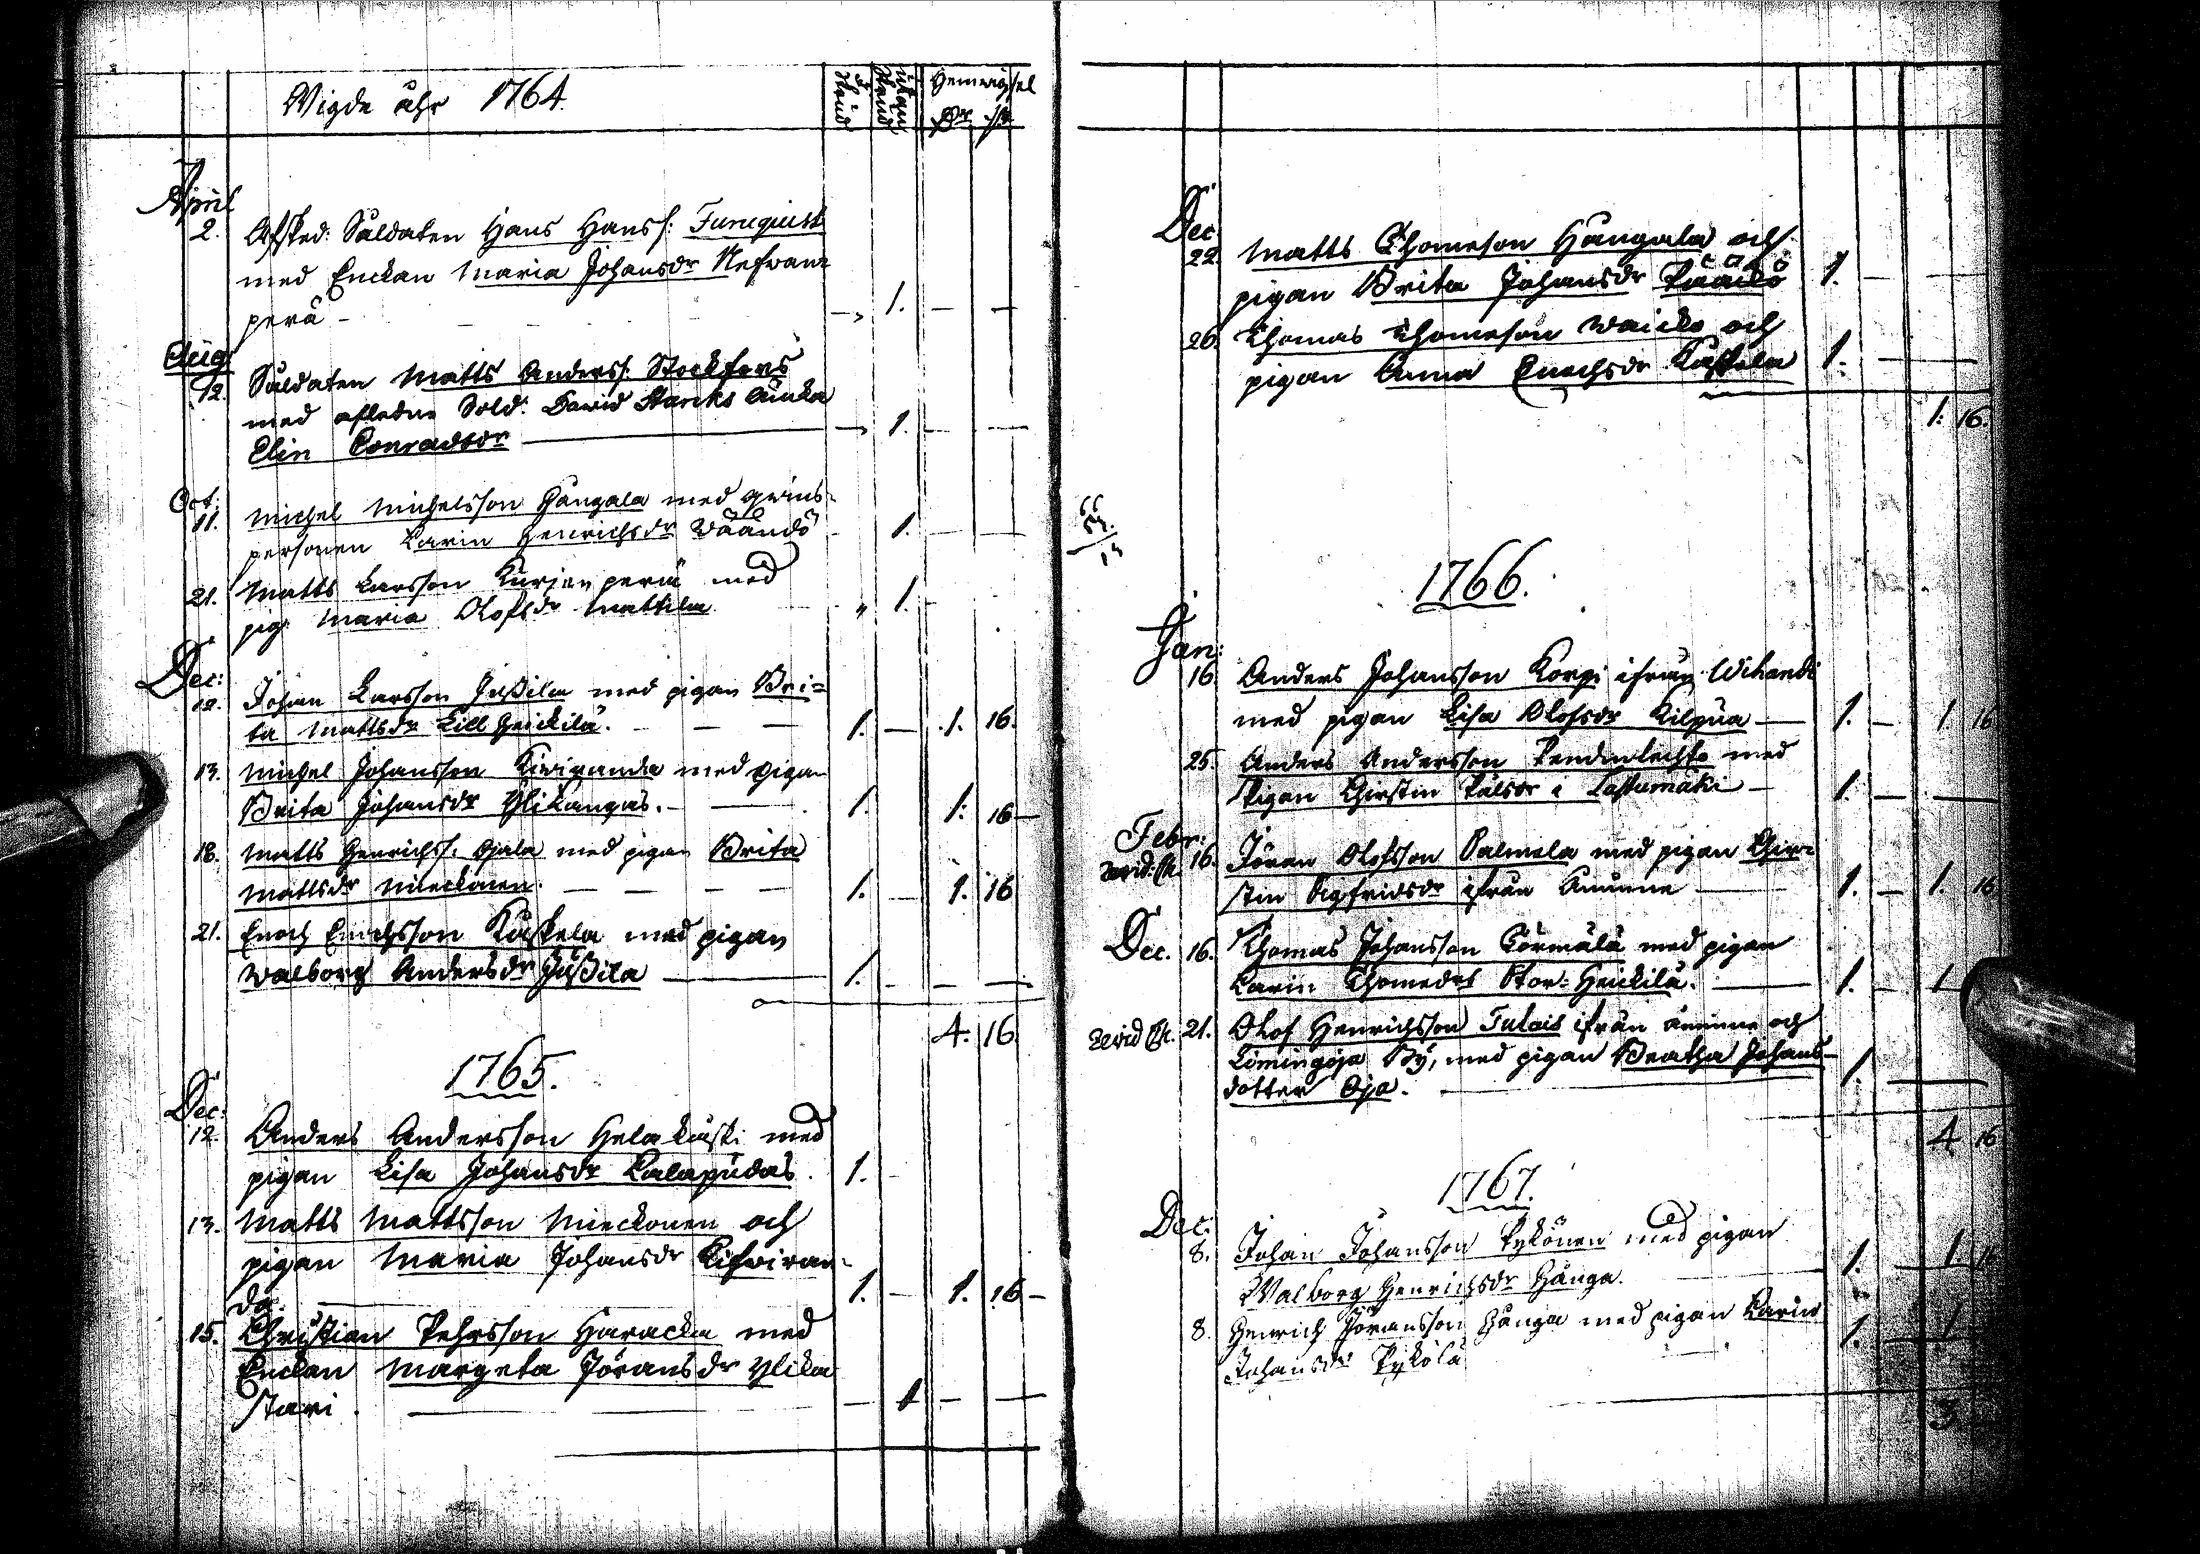 Wigde åhr 1764.
Hemwigsel
April
2. Afsked: Soldaten Hans Hanss: Furuquist
med Enckan Maria Johansdr Nefwan-
perä
Aug:
12. Soldaten Matts Anderss: Stockfors
med afledne Sold: David Starcks Äncka
Elin Conradsdr
Oct:
11. Michel Michelsson Hångala med qwins-
personen Karin Henrichsdr Wäändö
21. Matts Larsson Kurjenperä med
pig: Maria Olofsdr Mattila
Dec:
12. Johan Larsson Jußila med pigan Bri=
ta Mattsdr Lill Heickilä. 1. 1. 16.
13. Michel Johansson Kiwiranda med pigan
Brita Johansdr Ylikangas. 1. 1. 16
18. Matts Henrichss: Ojala med pigan Brita
Mattsdr Mieckonen. 1. 1. 16
21. Enoch Enochsson Kåskela med pigan
Walborg Andersdr Jußila 1.
4. 16
1765.
Dec:
12. Anders Andersson Helakuski med
pigan Lisa Johansdr Kalapudas. 1.
13. Matts Mattsson Mieckonen och
pigan Maria Johansdr Kifwiran-
da. 1. 1. 16
15. Christian Pehrsson Haracka med
Enckan Margeta Jöransdr Ylika
stari. 1
Dec
22. Matts Thomeson Hångala och
pigan Brita Johansdr 1.
26. Thomas Thomeson Waicko och
pigan Anna Enochsdr Kåskela 1.
1. 16.
1766.
Jan:
16. Anders Johansson Korpi ifrån Wihandi
med pigan Lisa Olofsdr Kilpua 1. 1. 16
25. Anders Andersson med
Pigan Chirstin Pålsdr i Lastumäki 1.
Febr:
16. Jöran Olofsson Palmela med pigan Chir-
stin Sigfridsdr ifrån 1. 1. 16
Dec. 16. Thomas Johansson Törmälä med pigan
Karin Thomedr Stor-Heickilä. 1. 1
21. Olof Henrichsson Tulais ifrån och
Limingoja By, med pigan Beatha Johans-
dotter Oja. 1.
4 16
1767.
Dec:
8. Johan Johansson Pykönen med pigan
Walborg Henrichsdr Hånga. 1. 1. 16
8. Henrich Jöransson Hånga med pigan Karin
Johansdr Pykölä 1. 1
3